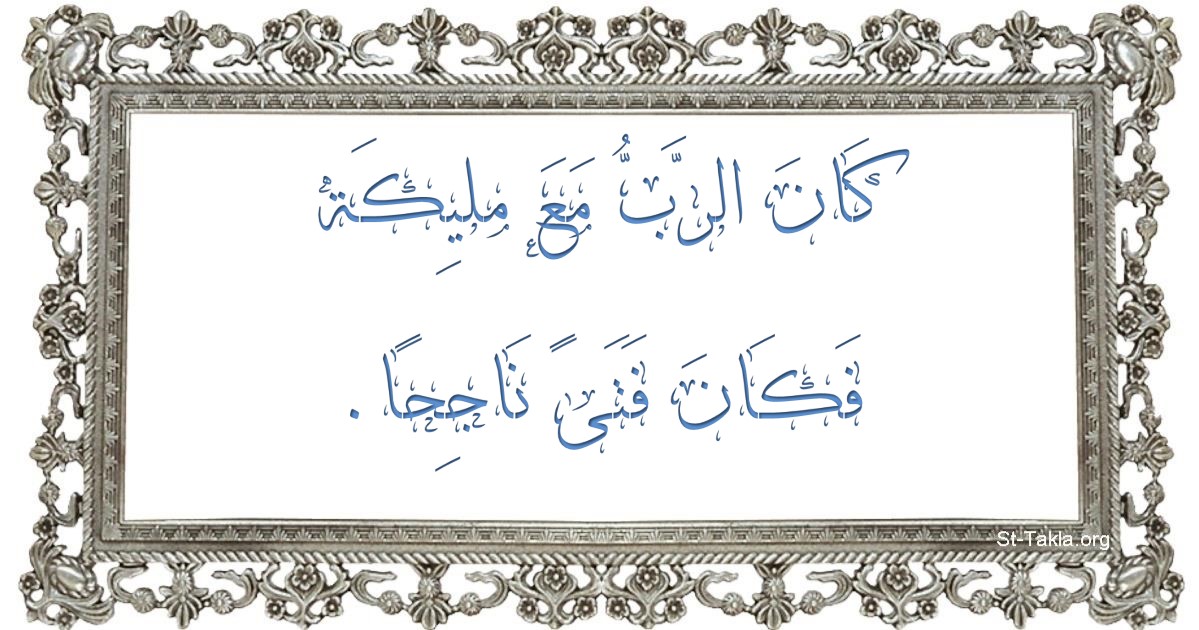 كَانَ الرَّبُّ مَعَ مليِكَة
فَكَانَ فَتَىً نَاجِحًا.
St-Takla.org